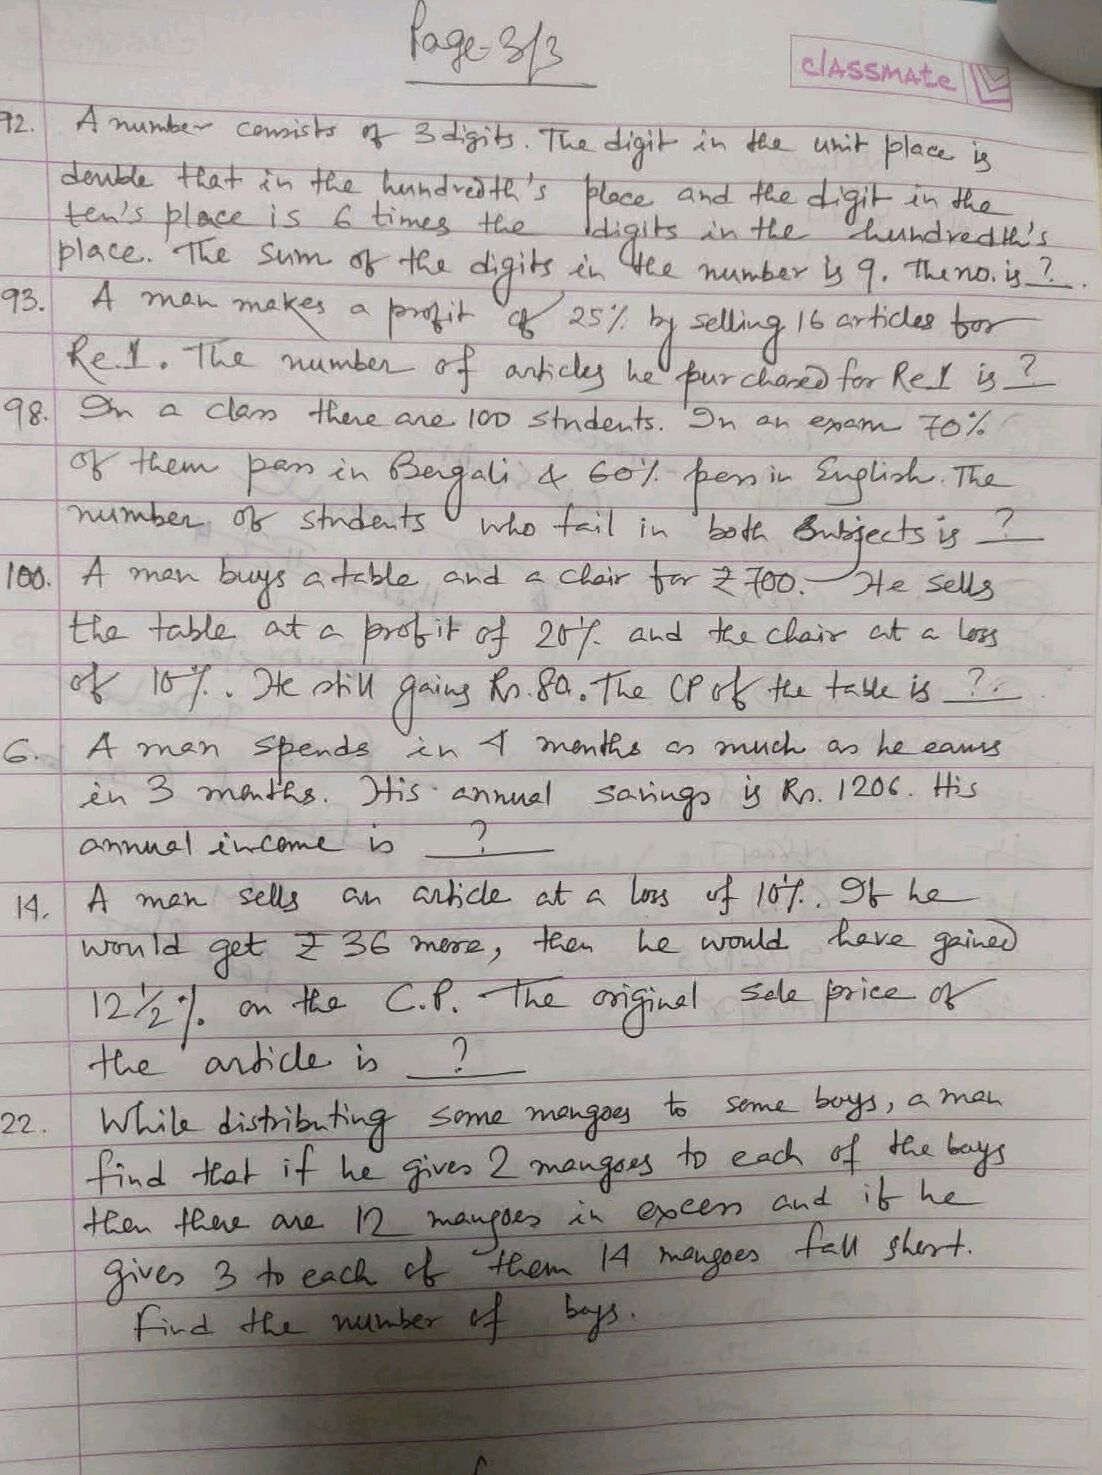 Page-3/3
classmate
92. A number consists of 3 digits. The digit in the unit place is
double that in the hundredth's place and the digit in the
ten's place is 6 times the digits in the hundredth's
place. The sum of the digits in the number is 9. The no. is ?.
93. A man makes a profit of 25% by selling 16 articles for
Re.1. The number of articles he purchased for Re1 is ?
98. In a class there are 100 students. In an exam 70%
of them pass in Bengali & 60% pass in English. The
number of students who fail in both subjects is ?
100. A man buys a table and a chair for ₹700.- He sells
the table at a profit of 20% and the chair at a loss
of 10%. He still gains Rs.80. The CP of the table is ?.
6. A man spends in 4 months as much as he earns
in 3 months. His annual savings is Rs. 1206. His
annual income is ?
14. A man sells an article at a loss of 10%. If he
would get ₹ 36 more, then he would have gained
12½% on the C.P. The original sale price of
the article is ?
22. While distributing some mangoes to some boys, a man
find that if he gives 2 mangoes to each of the boys
then there are 12 mangoes in excess and if he
gives 3 to each of them 14 mangoes fall short.
Find the number of boys.